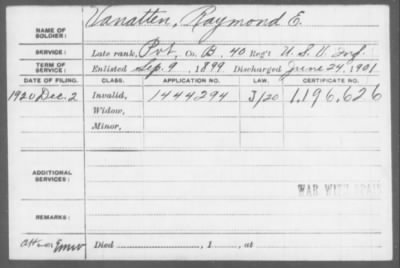 Vanatten, Raymond E.
NAME OF SOLDIER:
SERVICE: Late rank, Pvt, Co. B, 40 Reg't U.S.V. Inf.
TERM OF SERVICE: Enlisted Sep. 9, 1899 Discharged June 24, 1901
DATE OF FILING. CLASS. APPLICATION NO. LAW. CERTIFICATE NO.
1920 Dec. 2 Invalid, 1444294 3/20 1,196,626
Widow,
Minor,
ADDITIONAL SERVICES:
WAR WITH SPAIN
REMARKS:
Died , 1 , at